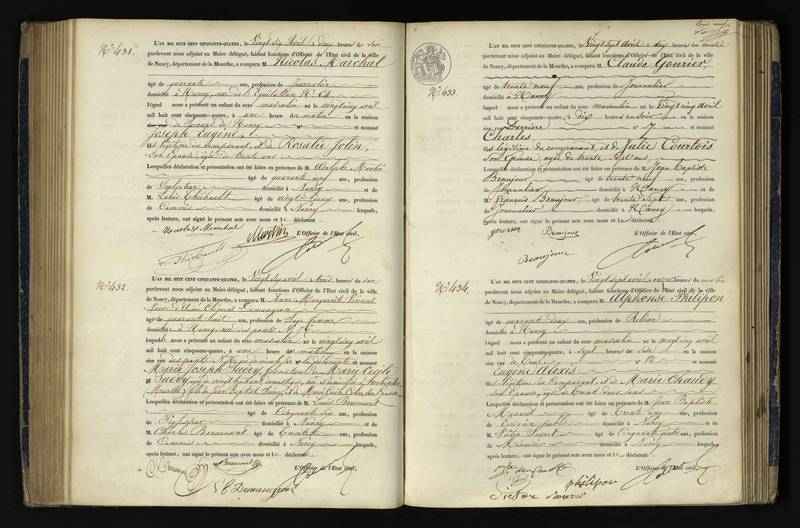 N° 431.
L'AN MIL HUIT CENT CINQUANTE-QUATRE, le Vingt six Avril à deux heures du soir
pardevant nous adjoint au Maire délégué, faisant fonctions d'Officier de l'Etat civil de la ville
de Nancy, département de la Meurthe, a comparu M. Nicolas Marchal
âgé de quarante ans, profession de Journalier
domicilié à Nancy, rue de l'Equitation N°
lequel nous a présenté un enfant du sexe masculin né le vingt cinq avril
mil huit cent cinquante-quatre, à une heure du matin en la maison
et nommé
Joseph Eugène
fils légitime du comparant, et de Rosalie Jolin,
son épouse, âgée de trente ans
Lesquelles déclaration et présentation ont été faites en présence de M. Adolphe Martin
âgé de quarante ans, profession
de domicilié à Nancy et de
M. Louis Thiébault âgé de vingt ans, profession
de Commis domicilié à Nancy lesquels,
après lecture, ont signé le présent acte avec nous et le déclarant.
Nicolas Marchal Martin L'Officier de l'Etat civil,
Thiébault
N° 432.
L'AN MIL HUIT CENT CINQUANTE-QUATRE, le Vingt six avril à trois heures du soir
pardevant nous adjoint au Maire délégué, faisant fonctions d'Officier de l'Etat civil de la ville
de Nancy, département de la Meurthe, a comparu M. Anne Marguerite
âgé de quarante huit ans, profession de Sage femme
domiciliée à Nancy rue des ponts N°
laquelle nous a présenté un enfant du sexe masculin né le vingt cinq avril
mil huit cent cinquante-quatre, à une heure du matin en la maison
sise rue des ponts et nommé
Marie Joseph Marie Cécile
Lesquelles déclaration et présentation ont été faites en présence de M. Louis Beaumont
âgé de Cinquante six ans, profession
de Professeur domicilié à Nancy et de
M. Charles Beaumont âgé de trente ans, profession
de Commis domicilié à Nancy lesquels,
après lecture, ont signé le présent acte avec nous et le déclarant.
Beaumont L'Officier de l'Etat civil,
N° 433.
L'AN MIL HUIT CENT CINQUANTE-QUATRE, le Vingt sept Avril à dix heures du matin
pardevant nous adjoint au Maire délégué, faisant fonctions d'Officier de l'Etat civil de la ville
de Nancy, département de la Meurthe, a comparu M. Claude Gourier,
âgé de trente neuf ans, profession de Journalier
domicilié à Nancy
lequel nous a présenté un enfant du sexe masculin né le Vingt cinq Avril
mil huit cent cinquante-quatre, à dix heures du soir en la maison
sise rue Derrière n° 17 et nommé
Charles,
fils légitime du comparant, et de Julie Courtois
son épouse, âgée de trente sept ans
Lesquelles déclaration et présentation ont été faites en présence de M. Jean Baptiste
Beaujour âgé de trente neuf ans, profession
de Journalier domicilié à Nancy et de
M. François Beaujour âgé de trente sept ans, profession
de Journalier domicilié à Nancy lesquels,
après lecture, ont signé le présent acte avec nous et le déclarant.
gourier Beaujour L'Officier de l'Etat civil,
Beaujour
N° 434.
L'AN MIL HUIT CENT CINQUANTE-QUATRE, le Vingt sept avril à onze heures du matin
pardevant nous adjoint au Maire délégué, faisant fonctions d'Officier de l'Etat civil de la ville
de Nancy, département de la Meurthe, a comparu M. Alphonse Philipon
âgé de quarante deux ans, profession de Relieur
domicilié à Nancy
lequel nous a présenté un enfant du sexe masculin né le vingt cinq avril
mil huit cent cinquante-quatre, à sept heures du soir en la maison
sise rue n° 12 et nommé
Eugène Alexis
fils légitime du Comparant, et de Marie Chaudy
son épouse, âgée de trente ans
Lesquelles déclaration et présentation ont été faites en présence de M. Jean Baptiste
âgé de trente cinq ans, profession
de Ecrivain public domicilié à Nancy et de
M. Victor âgé de Cinquante quatre ans, profession
de Menuisier domicilié à Nancy lesquels,
après lecture, ont signé le présent acte avec nous et le déclarant.
L'Officier de l'Etat civil,
philipon
Victore